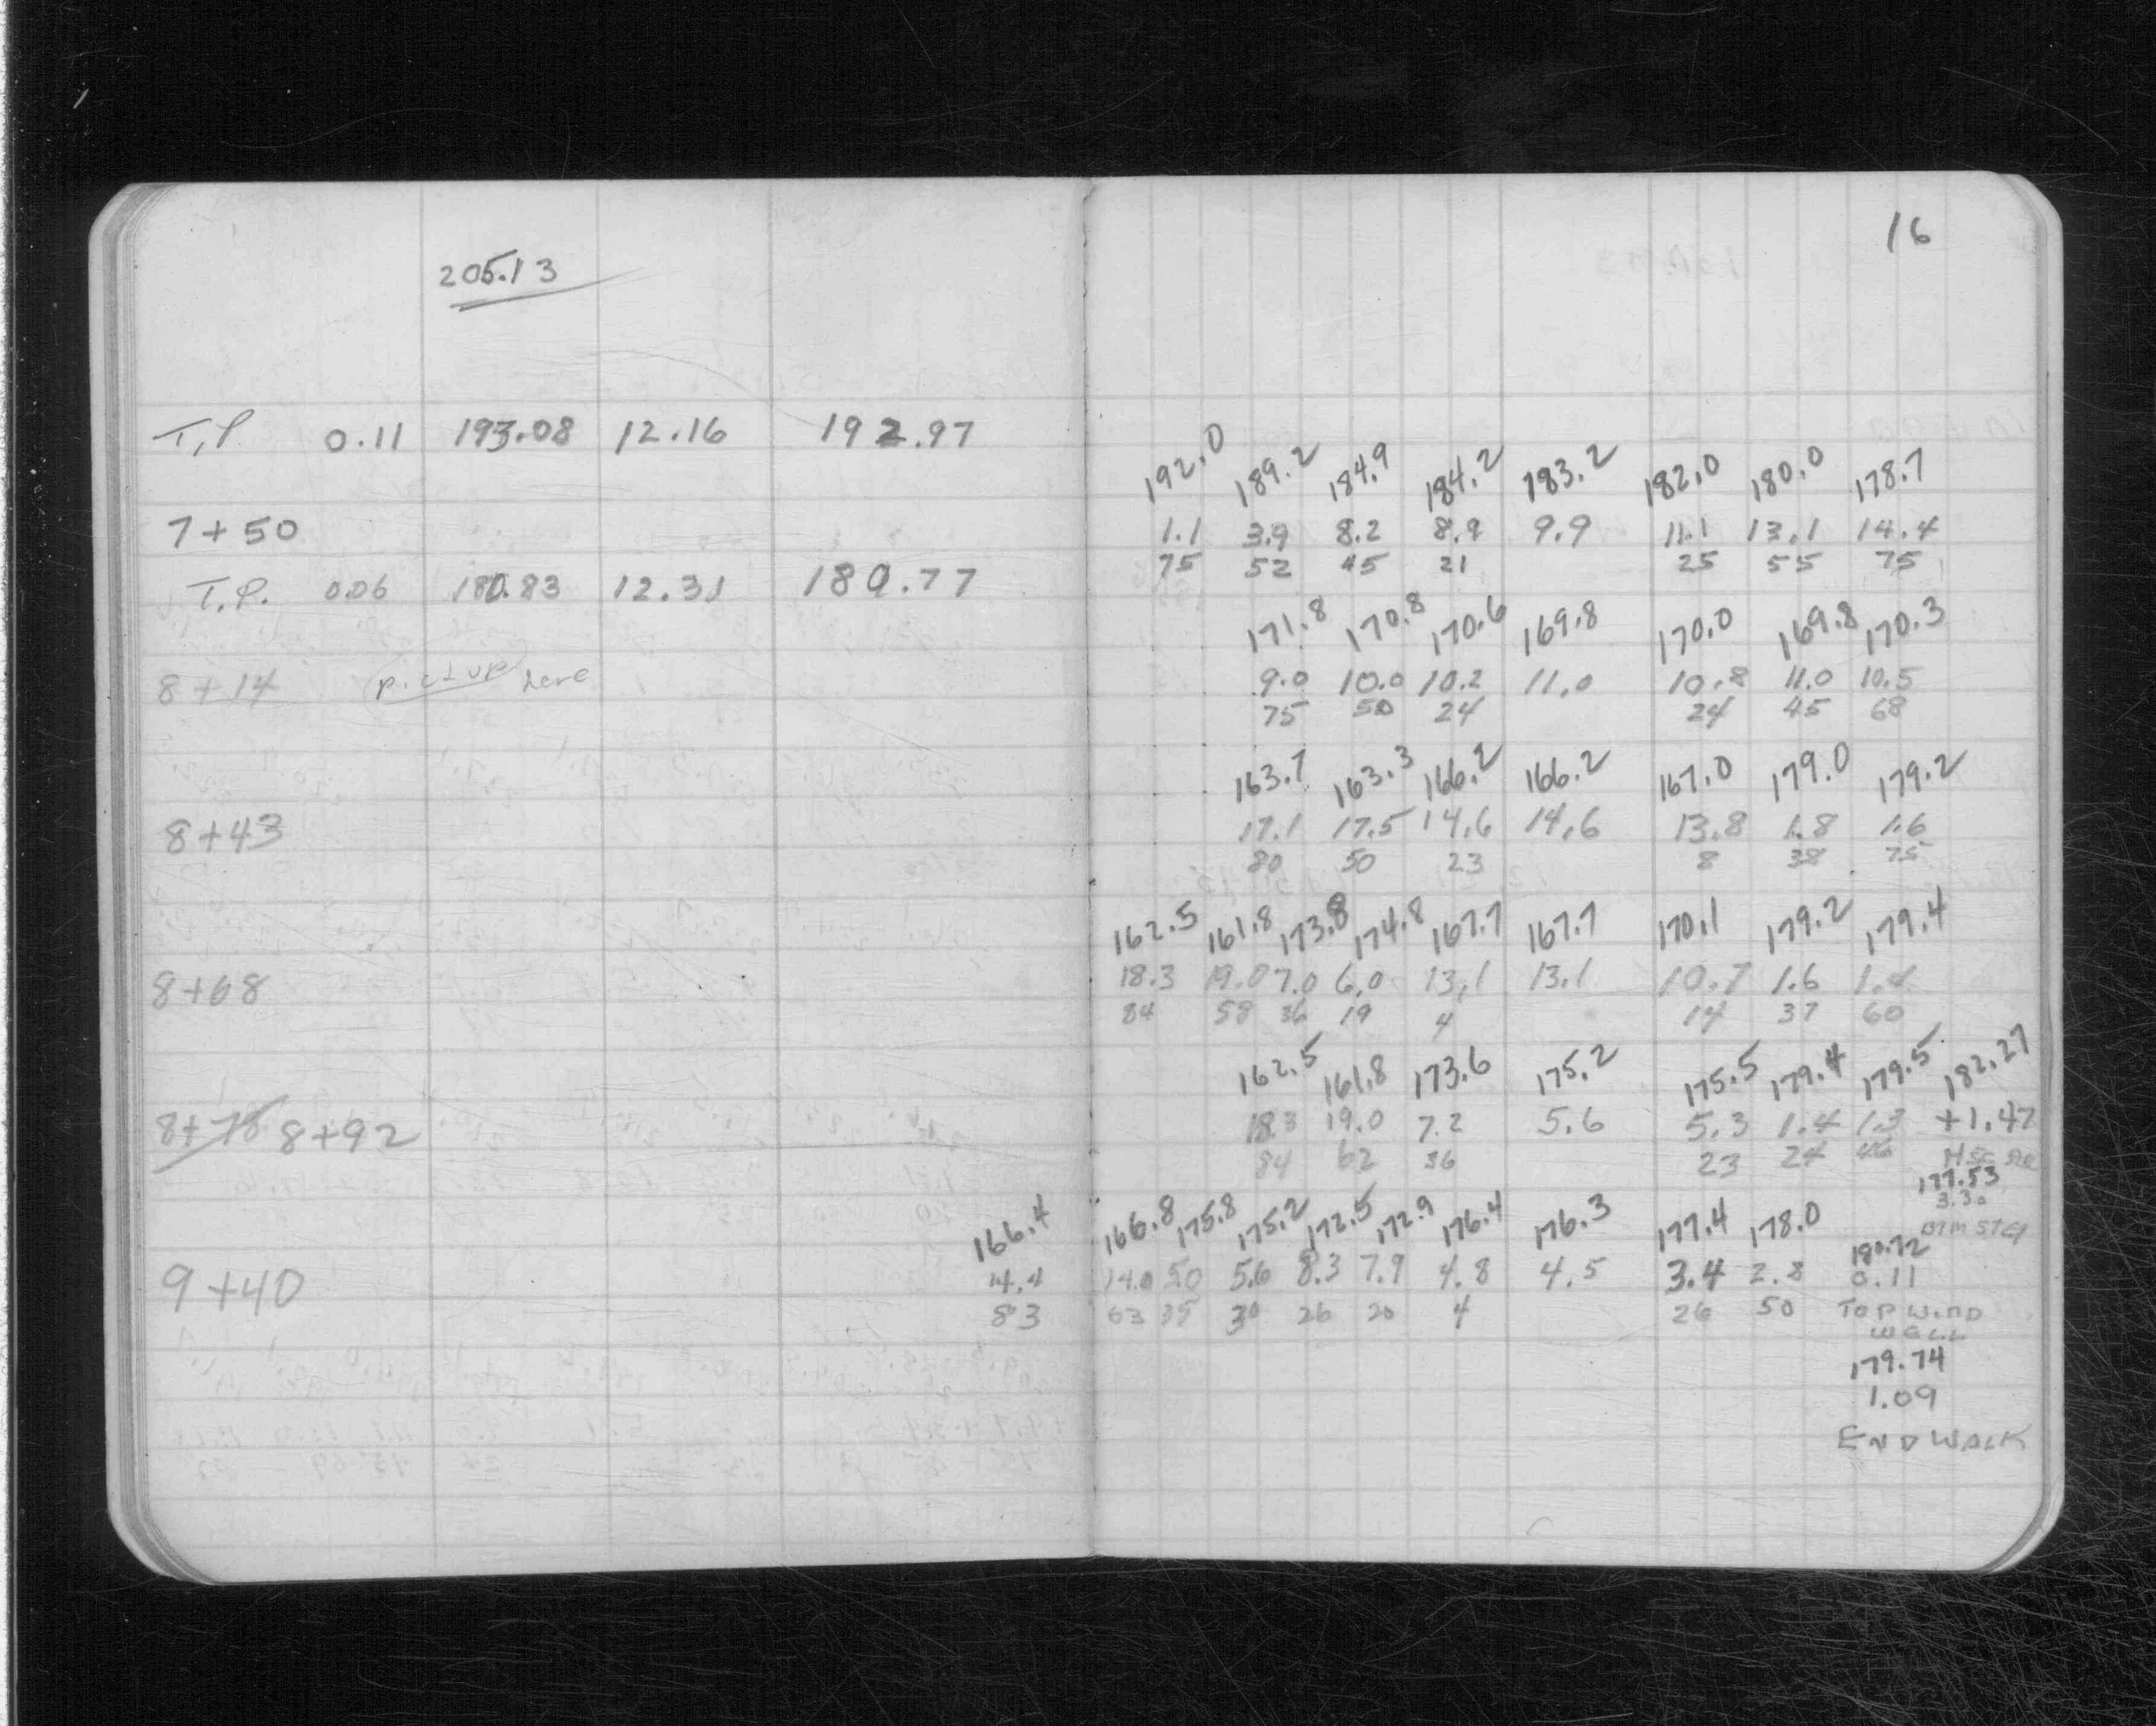 16
205.13
T.P. 0.11 193.08 12.16 192.97
192.0 189.2 184.9 184.2 183.2 182.0 180.0 178.7
7+50 1.1 3.9 8.2 8.9 9.9 11.1 13.1 14.4
75 52 45 21 25 55 75
T.P. 0.06 180.83 12.31 180.77
171.8 170.8 170.6 169.8 170.0 169.8 170.3
8+14 pict up here 9.0 10.0 10.2 11.0 10.8 11.0 10.5
75 50 24 24 45 68
163.7 163.3 166.2 166.2 167.0 179.0 179.2
8+43 17.1 17.5 14.6 14.6 13.8 1.8 1.6
80 50 23 8 38 75
162.5 161.8 173.8 174.8 167.7 167.7 170.1 179.2 179.4
8+68 18.3 19.0 7.0 6.0 13.1 13.1 10.7 1.6 1.4
84 58 36 19 4 14 37 60
162.5 161.8 173.6 175.2 175.5 179.4 179.5 182.27
8+78 8+92 18.3 19.0 7.2 5.6 5.3 1.4 1.3 +1.47
84 62 36 23 24 46
177.53
3.30
BTM STEP
166.4 166.8 175.8 175.2 172.5 172.9 176.4 176.3 177.4 178.0 180.72
9+40 14.4 14.0 5.0 5.6 8.3 7.9 4.8 4.5 3.4 2.8 0.11
83 63 35 30 26 20 4 26 50 TOP WIND
WALL
179.74
1.09
END WALK